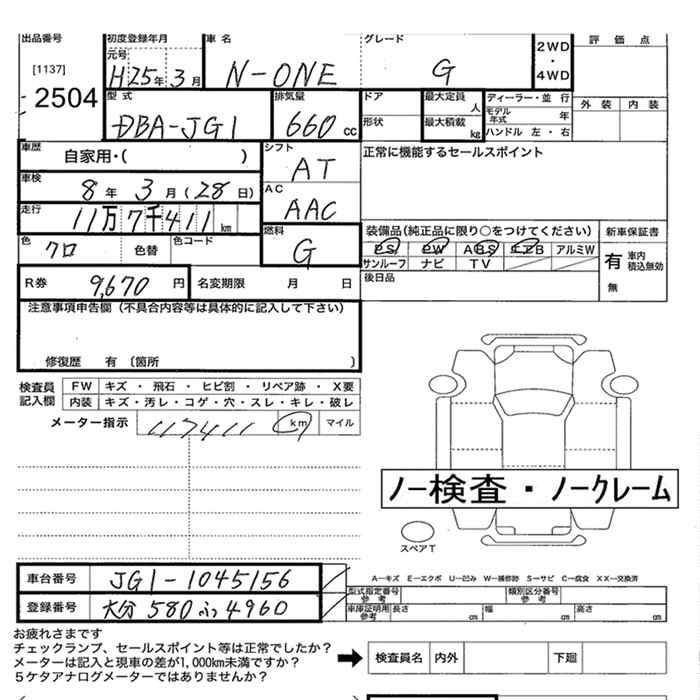 出品番号 初度登録年月 車名 グレード 2WD・4WD 評価点
[1137] 元号 H25年3月 N-ONE G
2504 型式 排気量 ドア 最大定員 人 ディーラー・並行 外装 内装
DBA-JG1 660cc 形状 最大積載 kg モデル年式 年
ハンドル 左・右
車歴 自家用・( ) シフト AT 正常に機能するセールスポイント
車検 8年3月(28日) AC AAC
走行 11万7千411km 燃料 G 装備品(純正品に限り○をつけてください) 新車保証書
色 クロ 色替 色コード PS PW ABS エアB アルミW 有 車内積込無効
サンルーフ ナビ TV 無
R券 9,670円 名変期限 月 日 後日品
注意事項申告欄(不具合内容等は具体的に記入して下さい)
修復歴 有〔箇所 〕
検査員記入欄 FW キズ・飛石・ヒビ割・リペア跡・X要
内装 キズ・汚レ・コゲ・穴・スレ・キレ・破レ
メーター指示 117411 km マイル
ノー検査・ノークレーム
スペアT
車台番号 JG1-1045156 A−キズ E−エクボ U−凹み W−補修跡 S−サビ C−腐食 XX−交換済
型式指定番号 参考 類別区分番号 参考
登録番号 大分 580 4960 車庫証明用 参考 長さ cm 幅 cm 高さ cm
お疲れさまです
チェックランプ、セールスポイント等は正常でしたか?
メーターは記入と現車の差が1,000km未満ですか? 検査員名 内外 下廻
5ケタアナログメーターではありませんか?